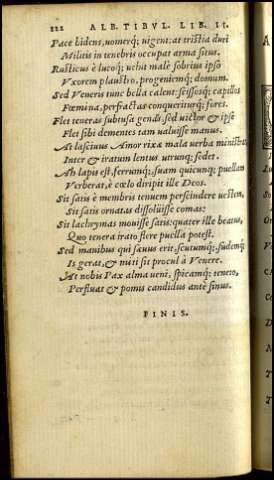 222 ALB. TIBVL. LIB. II.
Pace bidens, uomerq; uigent: at tristia duri
Militis in tenebris occupat arma situs.
Rusticus è lucoq; uehit malè sobrius ipso
Vxorem plaustro, progeniemq; domum.
Sed Veneris tunc bella calent: scissosq; capillos
Fœmina, perfractas conqueriturq; fores.
Flet teneras subtusa genas: sed uictor & ipse
Flet sibi dementes tam ualuisse manus.
At lasciuus Amor rixæ mala uerba ministrat,
Inter & iratum lentus utrunq; sedet.
Ah lapis est, ferrumq; suam quicunq; puellam
Verberat, è cœlo diripit ille Deos.
Sit satis è membris tenuem perscindere uestem,
Sit satis ornatas dissoluisse comas:
Sit lachrymas mouisse satis: quater ille beatus,
Quo tenera irato flere puella potest.
Sed manibus qui sæuus erit, scutumq; sudemq;
Is gerat, & miti sit procul à Venere.
At nobis Pax alma ueni, spicamq; teneto,
Perfluat & pomis candidus antè sinus.
FINIS.